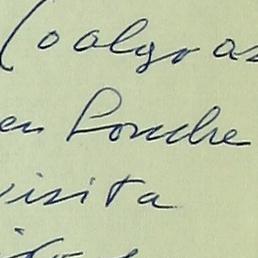 (o algo as
en Londre
visita